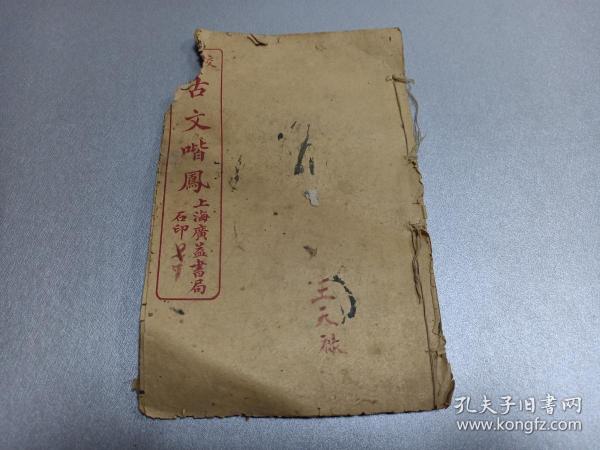 校
古文喈鳳
上海廣益書局
石印
王元禄
孔夫子旧书网
www.kongfz.com